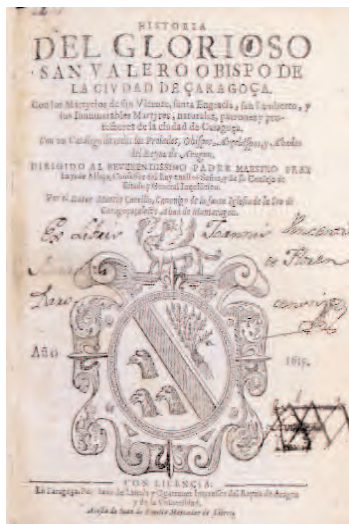 HISTORIA
DEL GLORIOSO
SAN VALERO OBISPO DE
LA CIVDAD DE ÇARAGOÇA.
Con los Martyrios de san Vicente, santa Engracia, san Lamberto, y
los Innumerables Martyres, naturales, patrones y pro-
tectores de la ciudad de Çaragoça.
Con un Catalogo de todos los Prelados, Obispos, Arçobispos, y Abades
del Reyno de Aragon.
DIRIGIDO AL REVERENDISSIMO PADRE MAESTRO FRAY
Luys de Aliaga, Confessor del Rey nuestro Señor, y de su Consejo de
Estado, y General Inquisicion.
Por el Doctor Martin Carrillo, Canonigo de la santa Iglesia de la Seo de
Çaragoça, Abad de Montaragon.
Ex Libris Joannis
de
Año 1615.
CON LICENCIA:
En Çaragoça, Por Iuan de Lanaja y Quartanet Impressor del Reyno de Aragon
y de la Vniuersidad.
A costa de Iuan de Bonilla Mercader de Libros.